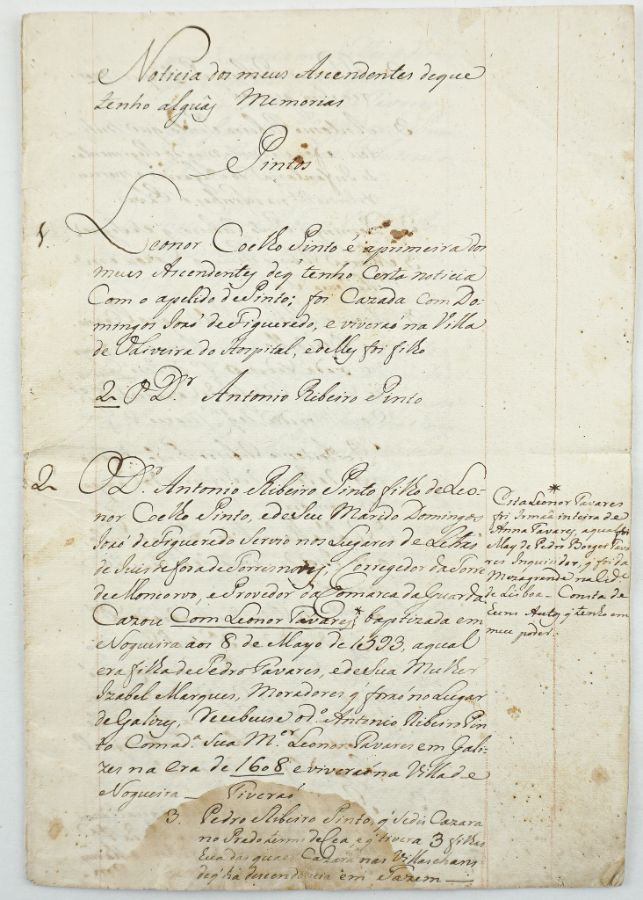 Noticia dos meus Ascendentes deque
tenho alguãs Memorias
Pintos
1. Leonor Coelho Pinto é aprimeira dos
meus Ascendentes deq' tenho Certa noticia
Com o apelido de Pinto; foi Cazada com Do-
mingos Joaõ de Figueredo, e viveraõ na Villa
de Oliveira do Hospital, e delles foi filho
2. O D.r Antonio Ribeiro Pinto
2. O D.r Antonio Ribeiro Pinto filho de Leo-
nor Coelho Pinto, e de seu Marido Domingos
Joaõ de Figueredo Servio nos Lugares de Letras
de Juis de fora de Torres Corregedor da Torre
de Moncorvo, e Provedor da Comarca da Guarda
Cazou Com Leonor Tavares* baptizada em
Nogueira aos 8 de Mayo de 1593, aqual
era filha de Pedro Tavares, e de Sua Mulher
Izabel Marques, Moradores q' foraõ no Lugar
de Galizes, Recebeuse o d.o Antonio Ribeiro Pin
to Com a d.a Sua M.er Leonor Tavares em Gali-
zes na era de 1608 e viveraõ na Villa de
Nogueira — Tiveraõ
3. Pedro Ribeiro Pinto, q' se dis Cazara
no Prado termo de Cea, e q' tivera 3 filhas
das quaes Cazara nas Villas
deq' há descendencia em
*
Esta Leonor Tavares
foi Irmaã inteira de
Anna Tavares, aqual foi
May de Pedro Borges Tava
res Inquisidor, q' foi da
Meza grande na Cid.e
de Lisboa — Consta de
huns Autos q' tenho em
meu poder.